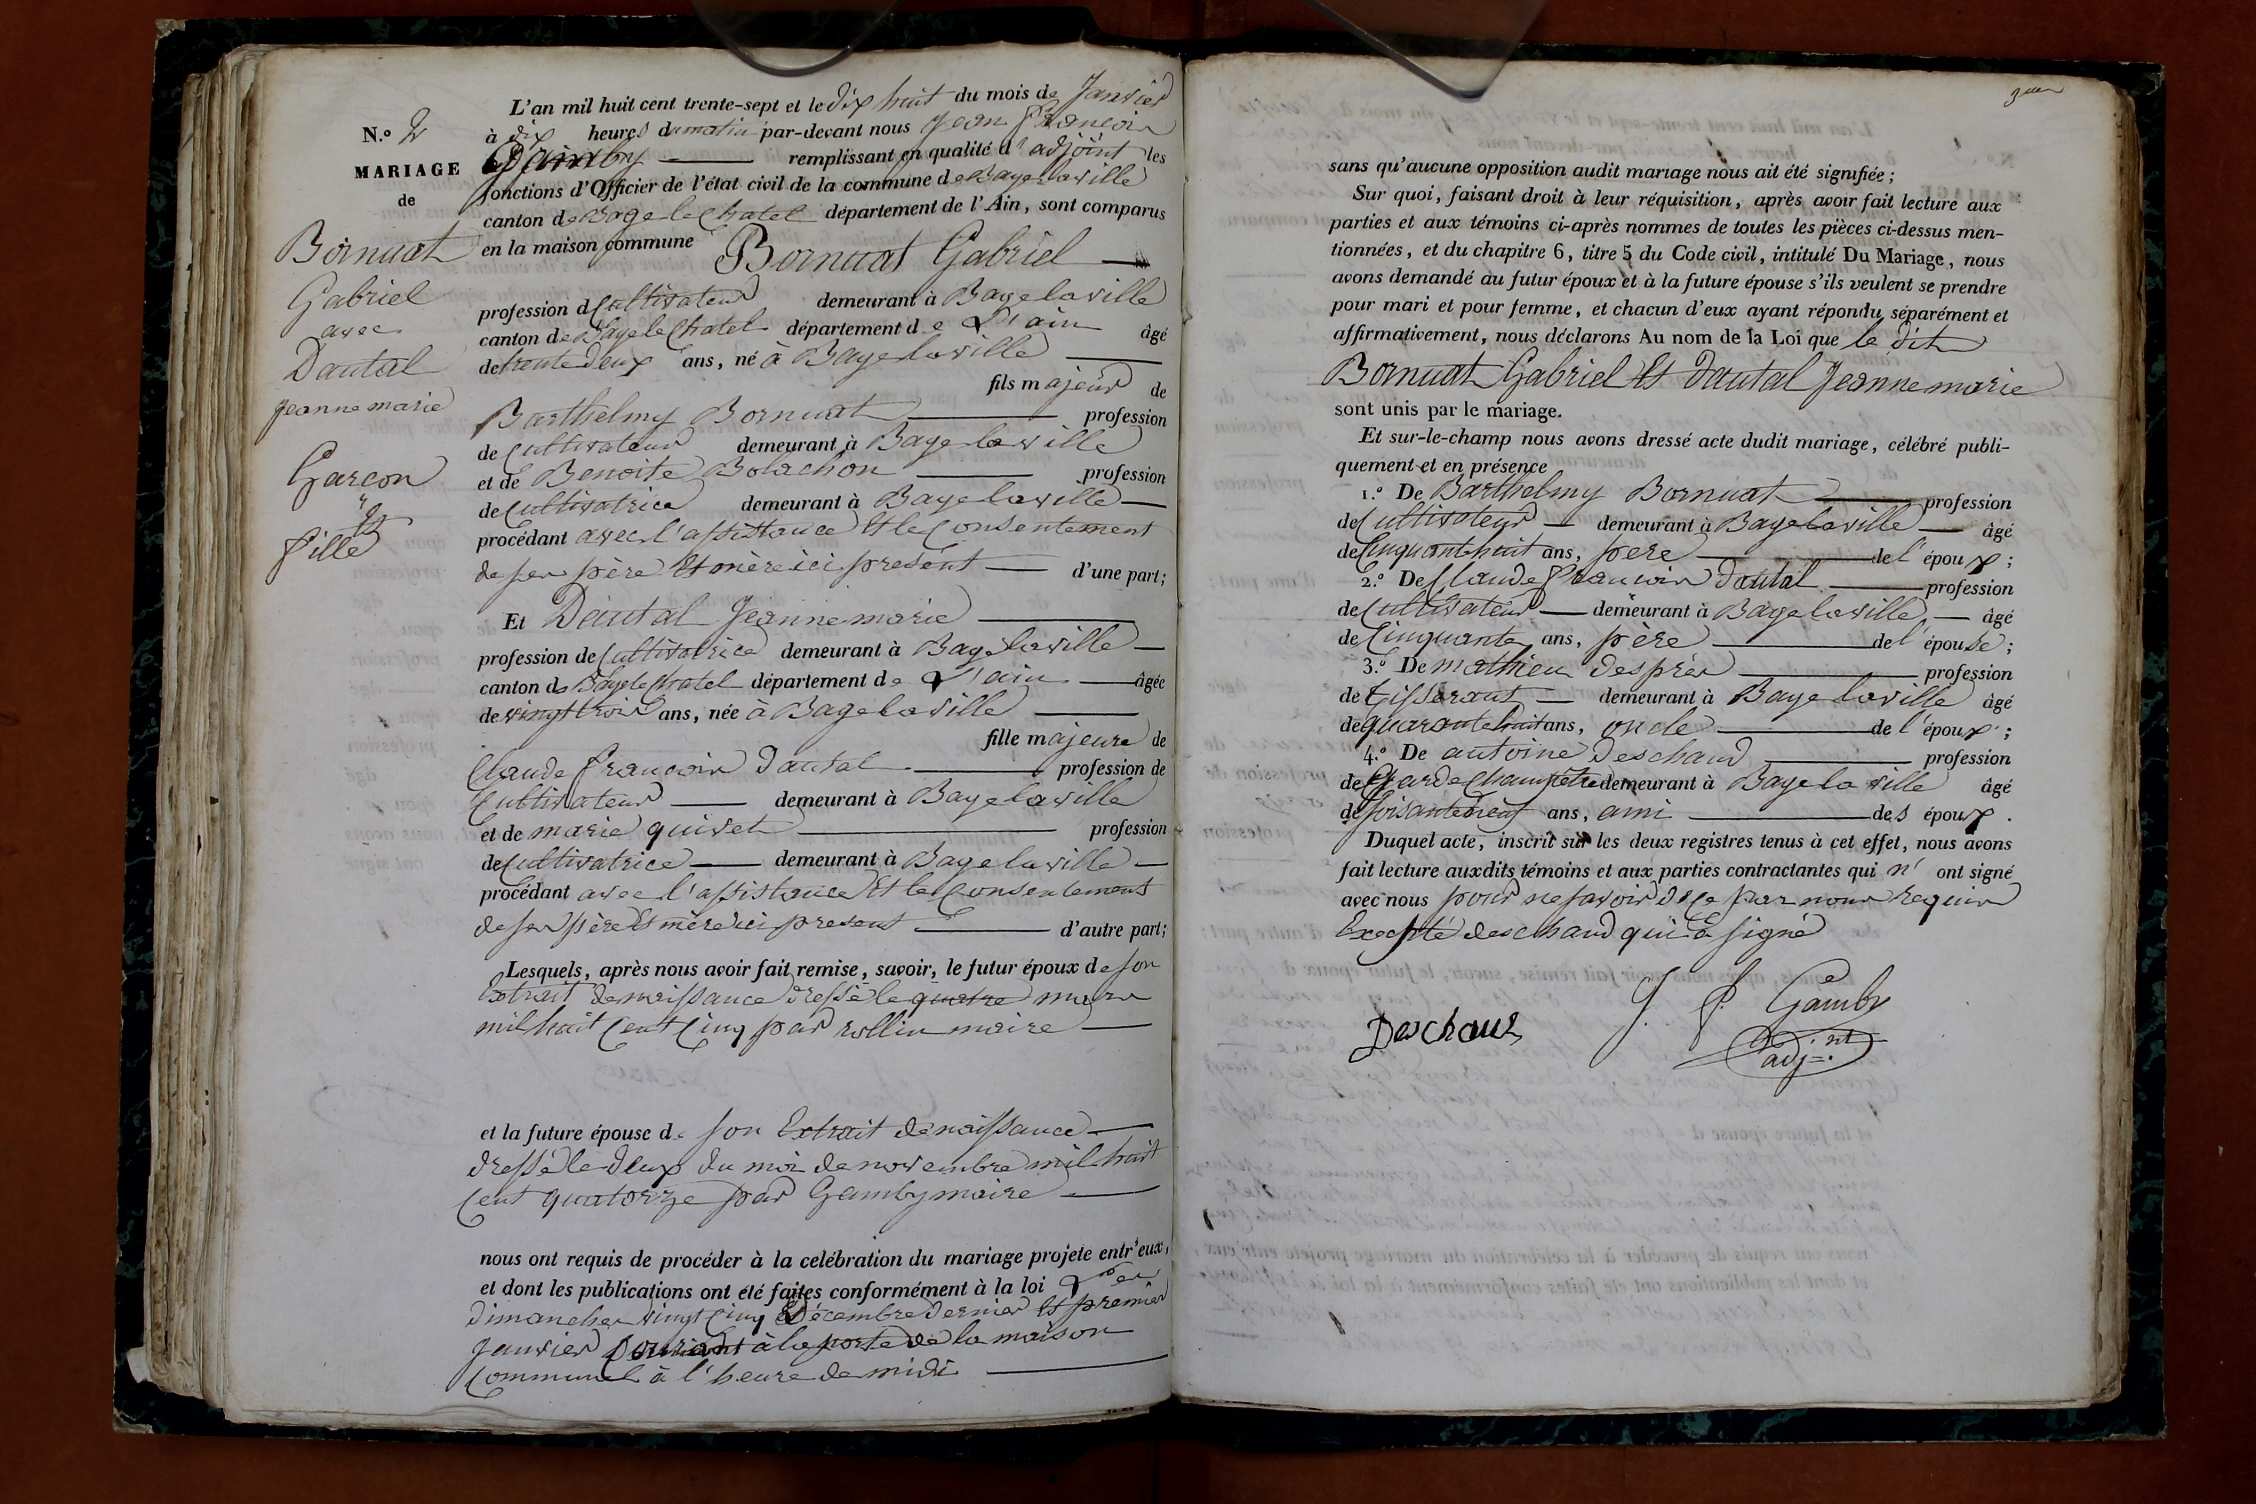 N.º 2
MARIAGE
de
Bornuat
Gabriel
avec
Dautal
Jeanne marie
Garcon
Et
fille
L'an mil huit cent trente-sept et le dix huit du mois de Janvier
à dix heures du matin par-devant nous Jean François
Gamby remplissant en qualité d'adjoint les
fonctions d'Officier de l'état civil de la commune de Bagelaville
canton de Bage le Chatel département de l'Ain, sont comparus
en la maison commune Bornuat Gabriel
profession de Cultivateur demeurant à Bagelaville
canton de Bage le Chatel département de L'ain âgé
de trente deux ans, né à Bagelaville
fils majeur de
Barthelmy Bornuat profession
de Cultivateur demeurant à Bagelaville
et de Benoite Bolachon profession
de Cultivatrice demeurant à Bagelaville
procédant avec l'assistance Et le Consentement
de ses père Et mère ici présent d'une part;
Et Dautal Jeanne marie
profession de Cultivatrice demeurant à Bagelaville
canton de Bage le Chatel département de L'ain âgée
de vingt trois ans, née à Bagelaville
fille majeure de
Claude François Dautal profession de
Cultivateur demeurant à Bagelaville
et de marie quivet profession
de Cultivatrice demeurant à Bagelaville
procédant avec l'assistance Et le Consentement
de ses père Et mère ici présent d'autre part;
Lesquels, après nous avoir fait remise, savoir, le futur époux de son
Extrait de naissance dressé le quatre mars
mil huit Cent Cinq par rollin maire
et la future épouse de son Extrait de naissance
dressé le deux du moi de novembre mil huit
Cent quatorze par Gamby maire
nous ont requis de procéder à la celébration du mariage projeté entr'eux,
et dont les publications ont été faites conformément à la loi Les
dimanches vingt Cinq Décembre dernier Et premier
Janvier Courant à la porte de la maison
Commune à l'heure de midi
sans qu'aucune opposition audit mariage nous ait été signifiée;
Sur quoi, faisant droit à leur réquisition, après avoir fait lecture aux
parties et aux témoins ci-après nommes de toutes les pièces ci-dessus men-
tionnées, et du chapitre 6, titre 5 du Code civil, intitulé Du Mariage, nous
avons demandé au futur époux et à la future épouse s'ils veulent se prendre
pour mari et pour femme, et chacun d'eux ayant répondu séparément et
affirmativement, nous déclarons Au nom de la Loi que le dit
Bornuat Gabriel Et Dautal Jeanne marie
sont unis par le mariage.
Et sur-le-champ nous avons dressé acte dudit mariage, célébré publi-
quement et en présence
1.º De Barthelmy Bornuat profession
de Cultivateur demeurant à Bagelaville âgé
de Cinquante huit ans, père de l'époux;
2.º De Claude François Dautal profession
de Cultivateur demeurant à Bagelaville âgé
de Cinquante ans, père de l'épouse;
3.º De mathieu Desprès profession
de tisserant demeurant à Bagelaville âgé
de quarante huit ans, oncle de l'époux;
4.º De antoine Deschaud profession
de Garde Champêtre demeurant à Bagelaville âgé
de ans, ami des époux.
Duquel acte, inscrit sur les deux registres tenus à cet effet, nous avons
fait lecture auxdits témoins et aux parties contractantes qui n' ont signé
avec nous pour ne savoir de ce par nous requis
Excepté deschaud qui a signé
Deschaud J. F. Gamby
adj.nt